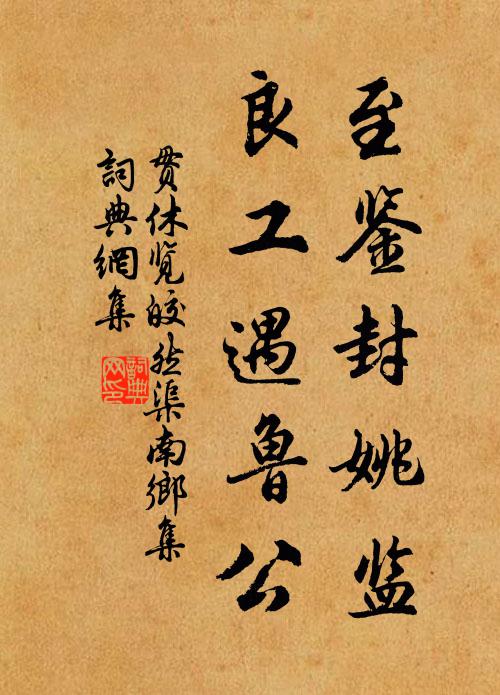 至鉴封姚监
良工遇鲁公
贯休览皎然渠南鄉集
詞典網集
詞典网印